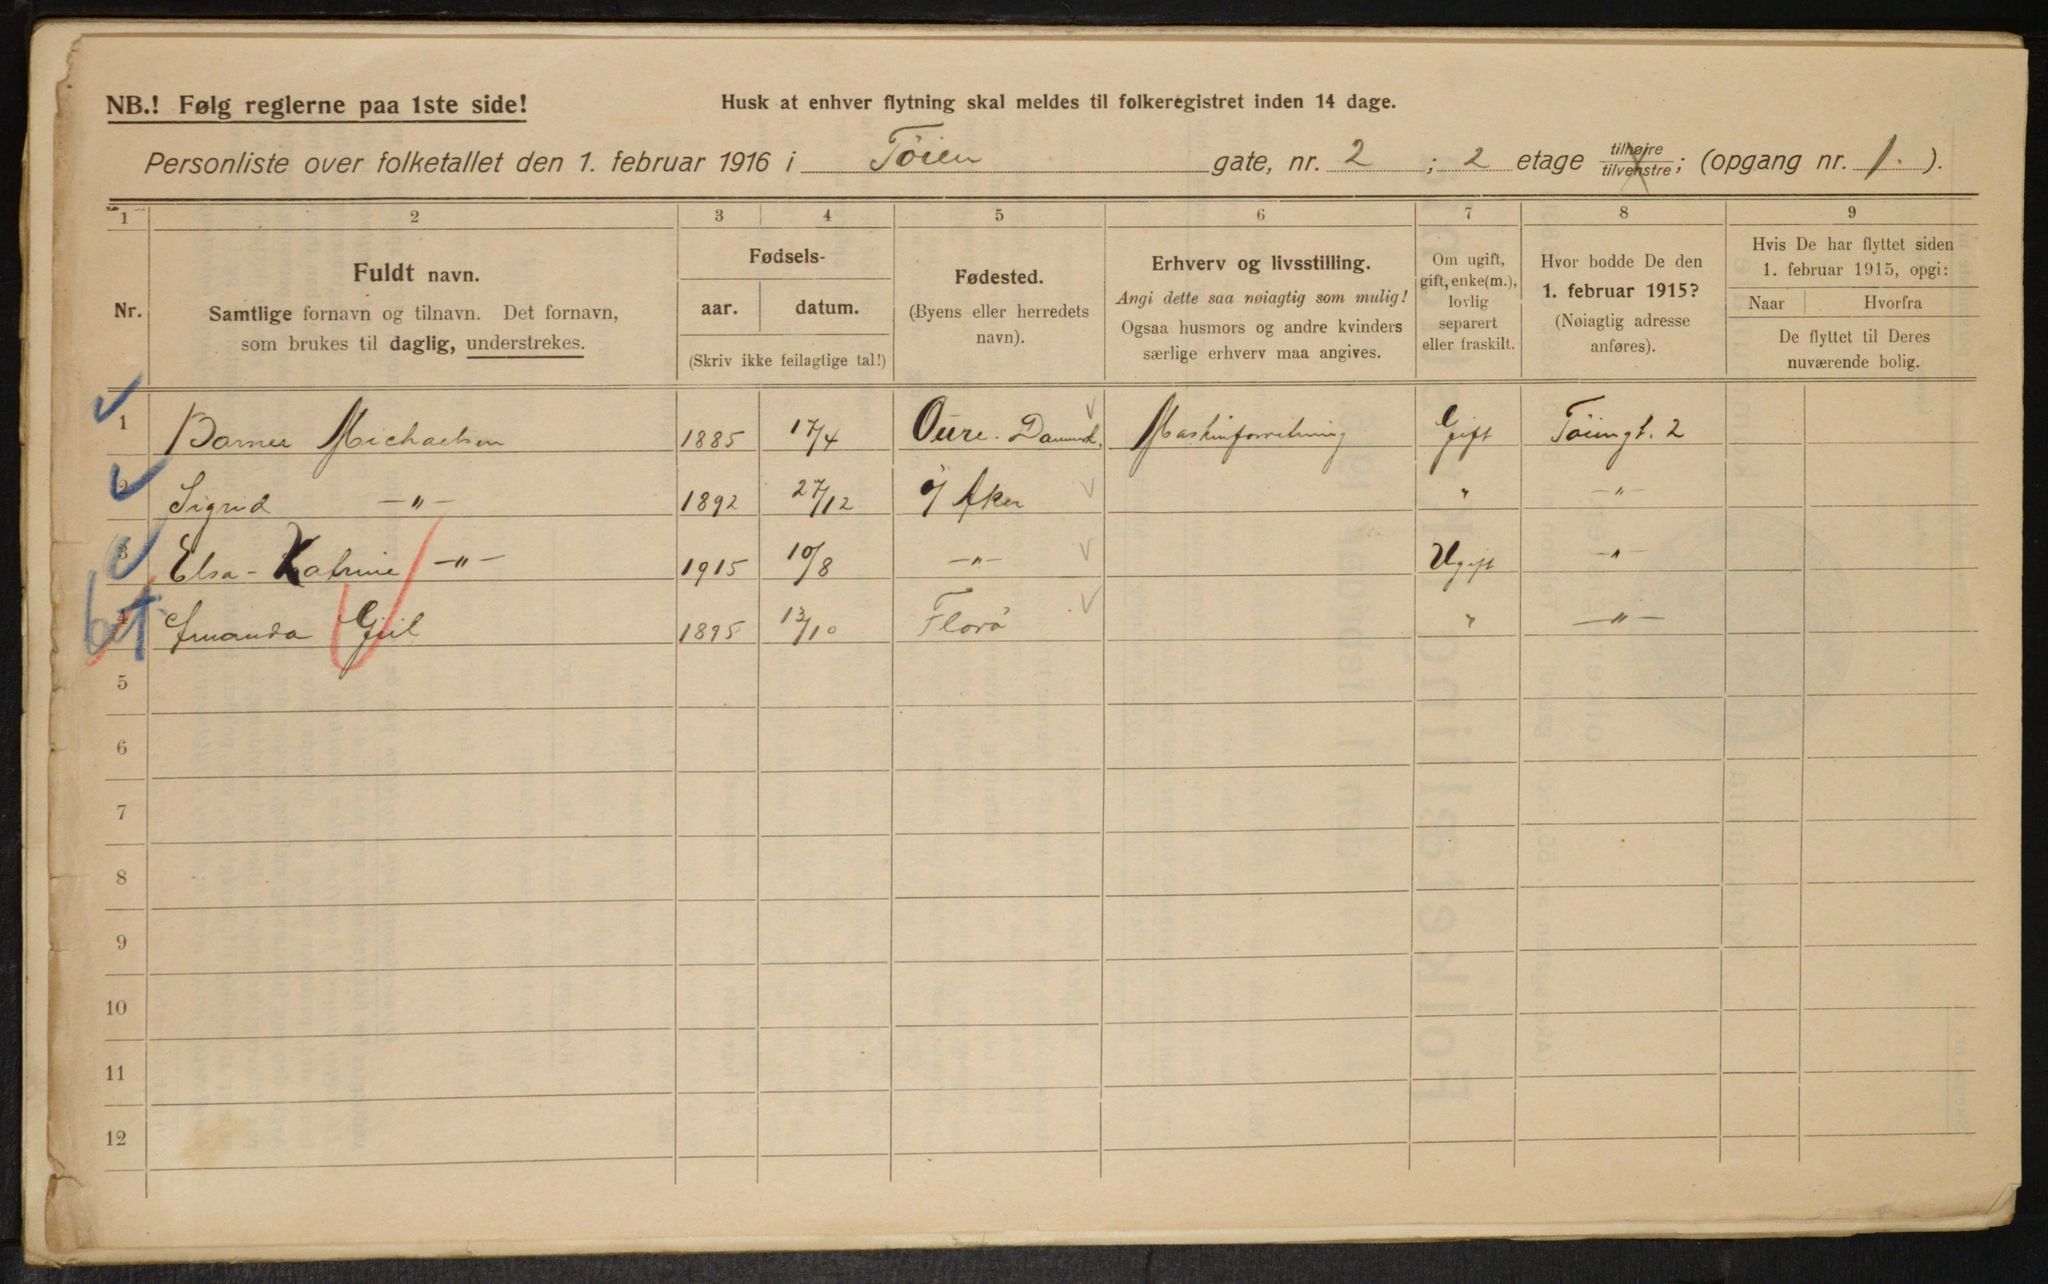 NB.! Følg reglerne paa 1ste side! Husk at enhver flytning skal meldes til folkeregistret inden 14 dage.
Personliste over folketallet den 1. februar 1916 i Tøien gate, nr. 2 ; 2 etage tilhøire tilvenstre; (opgang nr. 1. ).
1 2 3 4 5 6 7 8 9
Nr.
Fuldt navn.
Samtlige fornavn og tilnavn. Det fornavn,
som brukes til daglig, understrekes.
Fødsels-
aar. datum.
(Skriv ikke feilagtige tal!)
Fødested.
(Byens eller herredets
navn).
Erhverv og livsstilling.
Angi dette saa nøiagtig som mulig!
Ogsaa husmors og andre kvinders
særlige erhverv maa angives.
Om ugift,
gift, enke(m.),
lovlig
separert
eller fraskilt.
Hvor bodde De den
1. februar 1915?
(Nøiagtig adresse
anføres).
Hvis De har flyttet siden
1. februar 1915, opgi:
Naar Hvorfra
De flyttet til Deres
nuværende bolig.
1 Michaelsen 1885 17/4 Oure. Danmk. Maskinforretning Gift Tøiengt. 2
2 Sigrid —"— 1892 27/12 Aker " —"—
3 Elsa-Katrine —"— 1915 10/8 —"— Ugift —"—
4 Amanda Giil 1895 13/10 Florø " —"—
5
6
7
8
9
10
11
12